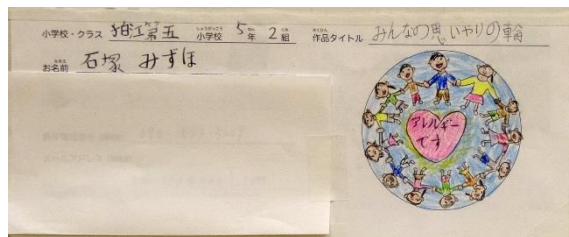 小学校・クラス 狛江第五小学校 5年 2組
作品タイトル みんなの思いやりの輪
お名前 石塚 みずほ
アレルギー
です